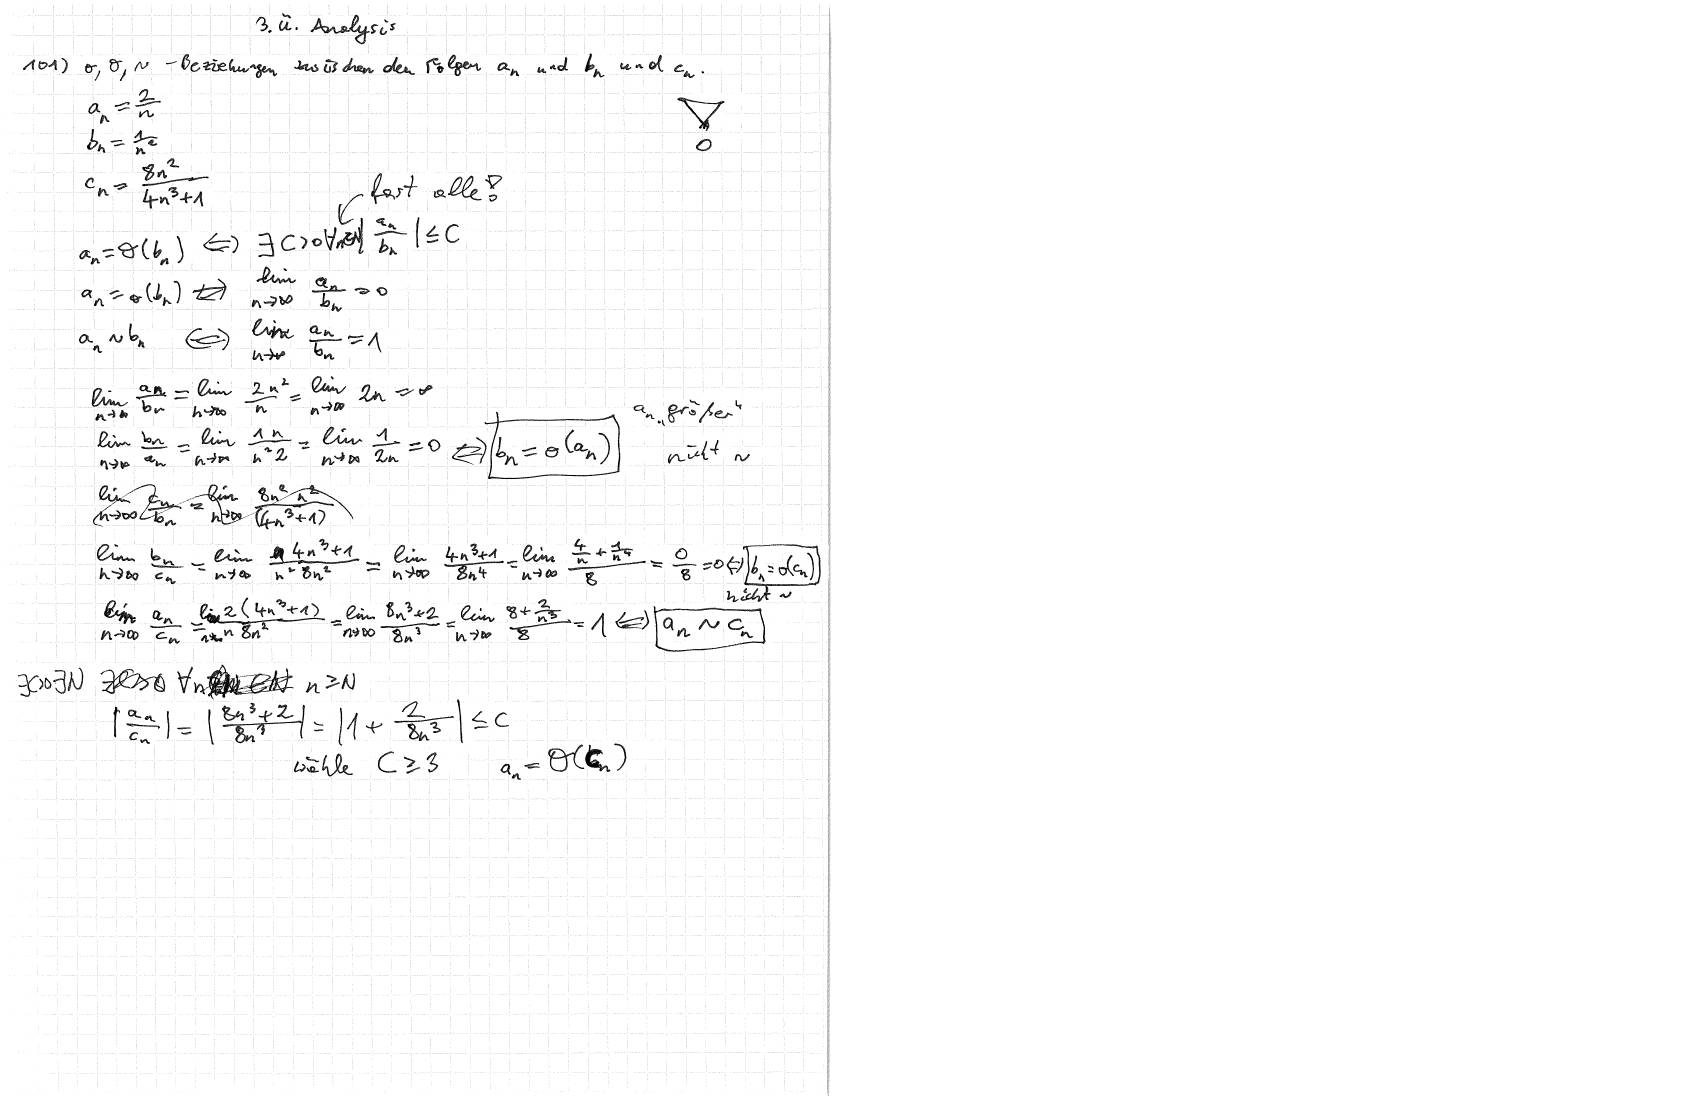 3. Ü. Analysis
101) o, O, ~ -Beziehungen zwischen den Folgen aₙ und bₙ und cₙ.
aₙ = 2/n
bₙ = 1/n²
cₙ = 8n²/(4n³+1)
fast alle!
aₙ = O(bₙ) ⇔ ∃C>0 ∀n∈ℕ |aₙ/bₙ| ≤ C
aₙ = o(bₙ) ⇔ lim n→∞ aₙ/bₙ = 0
aₙ ~ bₙ ⇔ lim n→∞ aₙ/bₙ = 1
lim n→∞ aₙ/bₙ = lim n→∞ 2n²/n = lim n→∞ 2n = ∞
aₙ „größer“
lim n→∞ bₙ/aₙ = lim n→∞ 1n/n²2 = lim n→∞ 1/2n = 0 ⇔ bₙ = o(aₙ)
nicht ~
lim n→∞ cₙ/bₙ = lim n→∞ 8n² n²/(4n³+1)
lim n→∞ bₙ/cₙ = lim n→∞ 4n³+1/n² 8n² = lim n→∞ 4n³+1/8n⁴ = lim n→∞ (4/n + 1/n⁴)/8 = 0/8 = 0 ⇔ bₙ = o(cₙ)
nicht ~
lim n→∞ aₙ/cₙ = lim n→∞ 2(4n³+1)/n 8n² = lim n→∞ 8n³+2/8n³ = lim n→∞ (8 + 2/n³)/8 = 1 ⇔ aₙ ~ cₙ
∃C>0 ∃N ∀n n ≥ N
|aₙ/cₙ| = |8n³+2/8n³| = |1 + 2/8n³| ≤ C
wähle C ≥ 3 aₙ = O(cₙ)